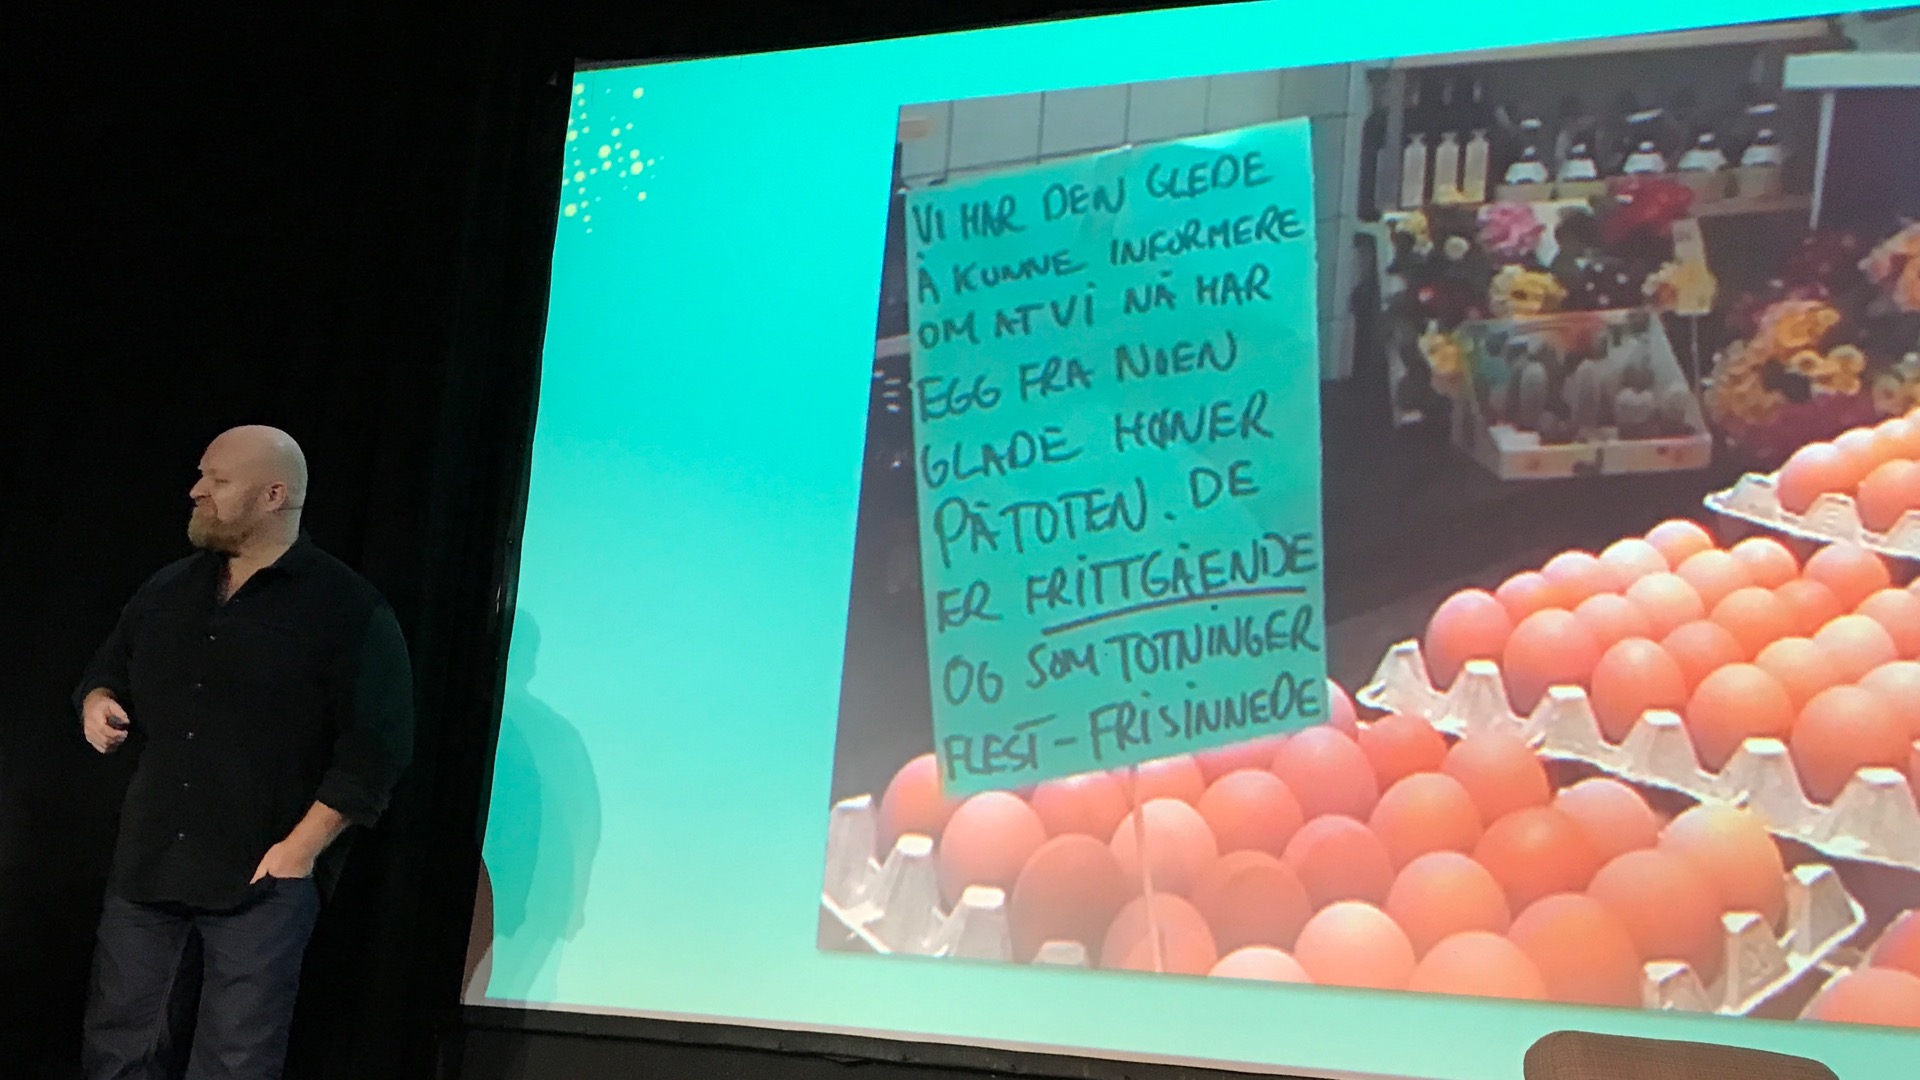 VI HAR DEN GLEDE
Å KUNNE INFORMERE
OM AT VI NÅ HAR
EGG FRA NOEN
GLADE HØNER
PÅ TOTEN. DE
ER FRITTGÅENDE
OG SOM TOTNINGER
FLEST - FRISINNEDE